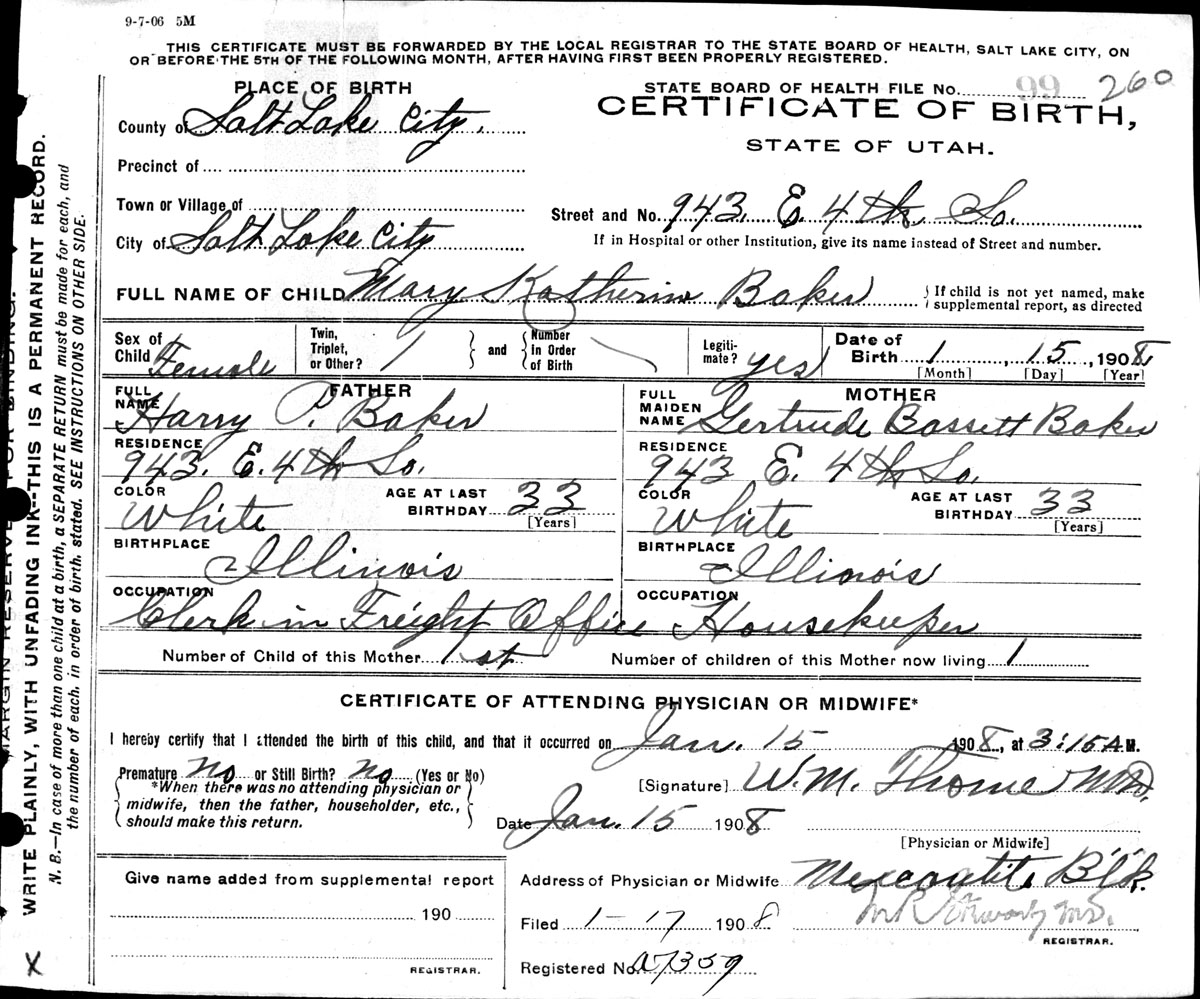 9-7-06 5M
THIS CERTIFICATE MUST BE FORWARDED BY THE LOCAL REGISTRAR TO THE STATE BOARD OF HEALTH, SALT LAKE CITY, ON
OR BEFORE THE 5TH OF THE FOLLOWING MONTH, AFTER HAVING FIRST BEEN PROPERLY REGISTERED.
PLACE OF BIRTH
STATE BOARD OF HEALTH FILE No. 99 260
County of Salt Lake City.
CERTIFICATE OF BIRTH,
STATE OF UTAH.
Precinct of
Town or Village of
Street and No. 943 E. 4th. So.
City of Salt Lake City
If in Hospital or other Institution, give its name instead of Street and number.
FULL NAME OF CHILD Mary Katherine Baker
If child is not yet named, make
supplemental report, as directed
Sex of Child Female
Twin, Triplet, or Other? 1 and Number In Order of Birth
Legiti-mate? yes
Date of Birth 1, 15, 1908
[Month] [Day] [Year]
FATHER
FULL NAME Harry P. Baker
RESIDENCE 943. E. 4th So.
COLOR White AGE AT LAST BIRTHDAY 33 [Years]
BIRTHPLACE Illinois
OCCUPATION Clerk in Freight Office
MOTHER
FULL MAIDEN NAME Gertrude Bassett Baker
RESIDENCE 943 E. 4th So.
COLOR White AGE AT LAST BIRTHDAY 33 [Years]
BIRTHPLACE Illinois
OCCUPATION Housekeeper
Number of Child of this Mother 1st Number of children of this Mother now living 1
CERTIFICATE OF ATTENDING PHYSICIAN OR MIDWIFE*
I hereby certify that I attended the birth of this child, and that it occurred on Jan. 15 1908, at 3:15 A.M.
Premature no or Still Birth? no (Yes or No)
*When there was no attending physician or
midwife, then the father, householder, etc.,
should make this return.
[Signature] W. M. Thorne MD.
Date Jan. 15 1908
[Physician or Midwife]
Give name added from supplemental report
190
REGISTRAR.
Address of Physician or Midwife Blk.
Filed 1-17 1908
M.D.
REGISTRAR.
Registered No. 7359
MARGIN RESERVED FOR BINDING.
WRITE PLAINLY, WITH UNFADING INK--THIS IS A PERMANENT RECORD.
N. B.—In case of more than one child at a birth, a SEPARATE RETURN must be made for each, and
the number of each. in order of birth. stated. SEE INSTRUCTIONS ON OTHER SIDE.
X